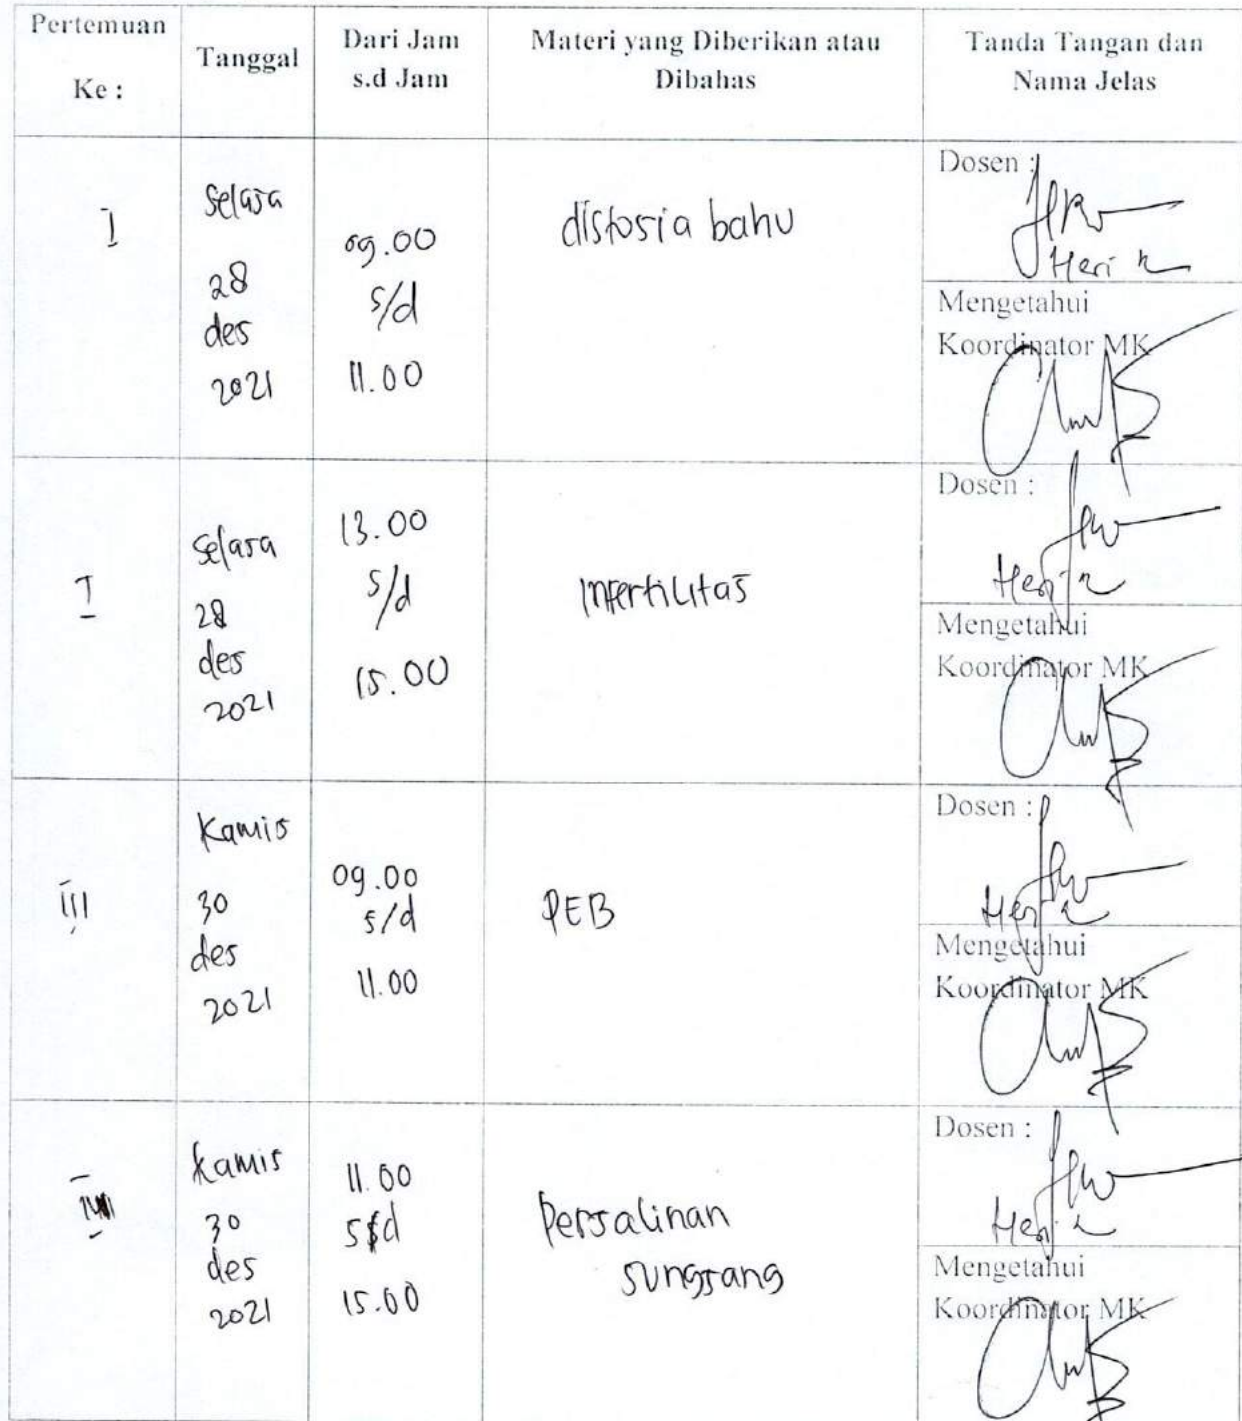 Pertemuan
Ke :
Tanggal
Dari Jam
s.d Jam
Materi yang Diberikan atau
Dibahas
Tanda Tangan dan
Nama Jelas
I
Selasa
28
des
2021
09.00
s/d
11.00
distosia bahu
Dosen :
Heri
Mengetahui
Koordinator MK
I
Selasa
28
des
2021
13.00
s/d
15.00
Infertilitas
Dosen :
Heri
Mengetahui
Koordinator MK
III
Kamis
30
des
2021
09.00
s/d
11.00
PEB
Dosen :
Heri
Mengetahui
Koordinator MK
kamis
30
des
2021
11.00
s/d
15.00
Persalinan
sungsang
Dosen :
Heri
Mengetahui
Koordinator MK